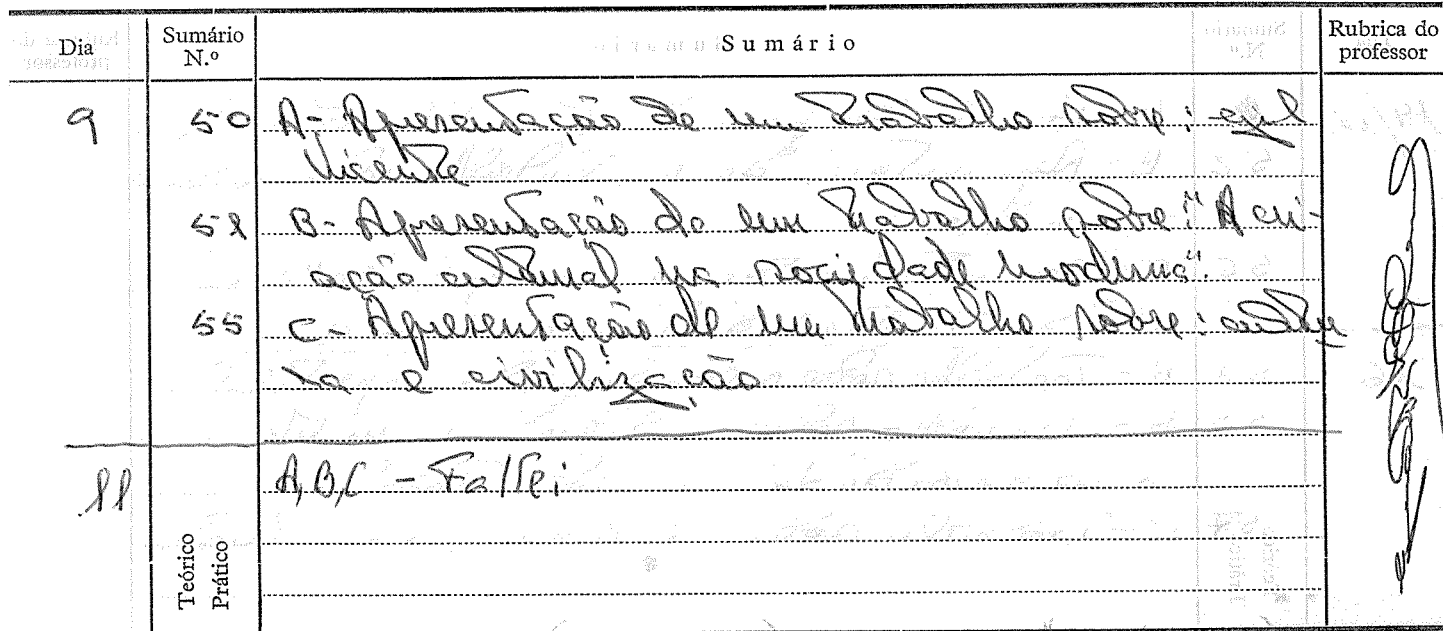 Dia Sumário N.º Sumário Rubrica do professor
9 50 A- Apresentação de um trabalho sobre: Gil
Vicente
51 B- Apresentação de um trabalho sobre: "A cri-
ação cultural na sociedade moderna".
55 C- Apresentação de um trabalho sobre: cultu
ra e civilização
11 A, B, C - Faltei
Teórico
Prático